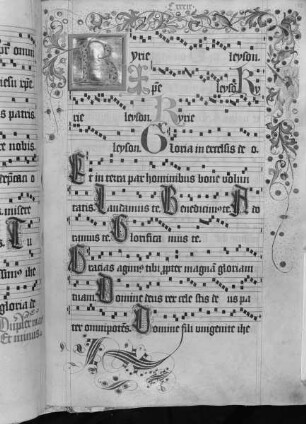 Cxciz.
yrie leyson.
Xpe leyso. Ky
rie leyson. Kyrie
leyson. Gloria in excelsis de o.
Et in terra pax hominibus bone volun
tatis. Laudamus te. Benedicimus te. Ado
ramus te. Glorifica mus te.
Gracias agimus tibi, propter magnā gloriam
tuam. Domine deus rex cele stis de us pa
ter omnipotēs. Domine fili unigenite ihe
omni
iesu xpe
s patris.
e nobis.
miserere
Tu
mus ihe
gloria de